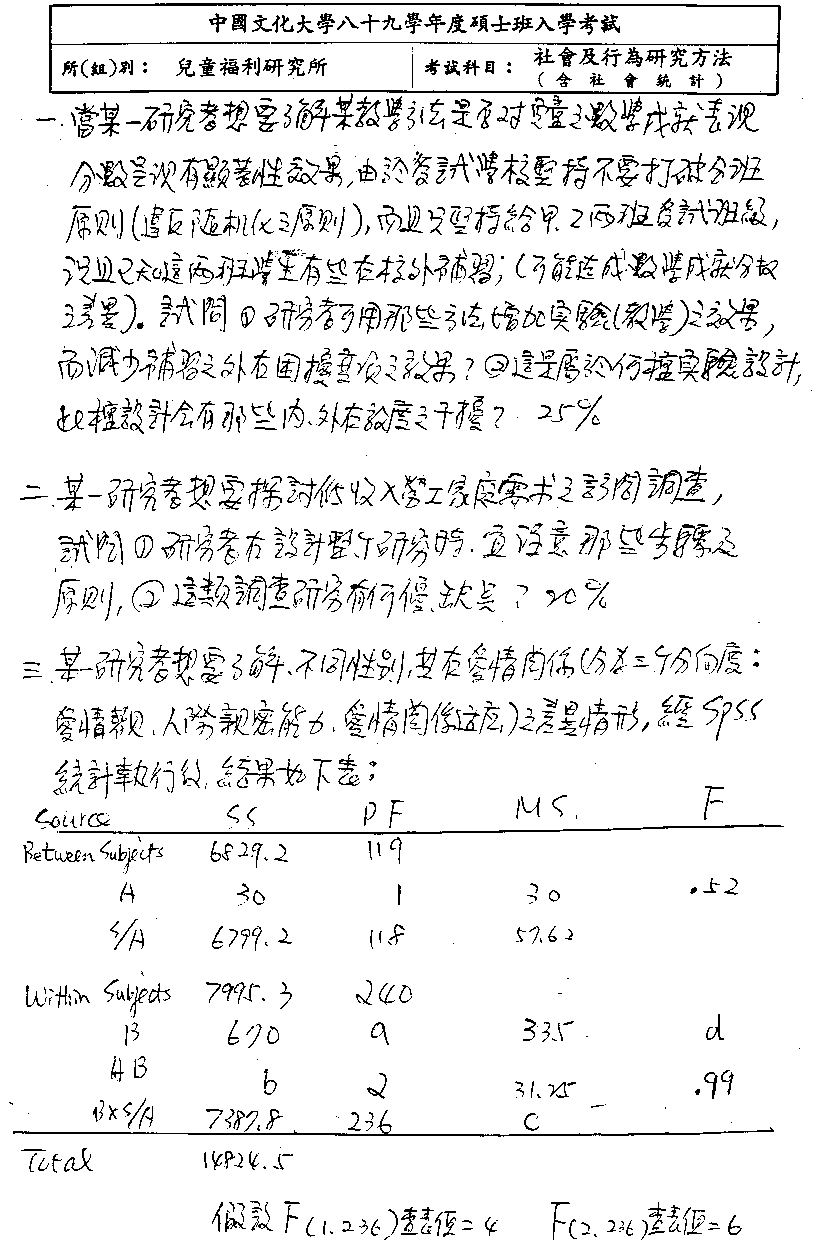 中國文化大學八十九學年度碩士班入學考試
所(組)別：兒童福利研究所 考試科目：社會及行為研究方法
(含社會統計)
一.當某一研究者想要了解某教學方法是否对兒童之數學成就表現
分數呈現有顯著性效果,由於受試學校堅持不要打破分班
原則(違反随机化之原則),而且只堅持給甲、乙兩班受試班級,
況且已知這兩班學生有些在校外補習;(可能造成數學成就分数
之差異)。試問①研究者可用那些方法增加实驗(教學)之效果,
而減少補習之外在困擾变项之效果?②這是屬於何種实驗設計,
此種設計会有那些内、外在效度之干擾? 25%
二.某一研究者想要探討低收入勞工家庭需求之訪問調查,
試問①研究者在設計整个研究時.宜注意那些步驟及
原则,②這類調查研究有何優.缺点? 20%
三.某一研究者想要了解、不同性别,其在愛情関係(分為三个分向度:
愛情觀、人際親密能力、愛情関係适应)之差異情形,經SPSS
統計執行後,結果如下表;
Source SS DF MS. F
Between Subjects 6829.2 119
A 30 1 30 .52
S/A 6799.2 118 57.62
Within Subjects 7995.3 240
B 670 a 335 d
AB b 2 31.25 .99
B×S/A 7387.8 236 C
Total 14824.5
假設F(1.236)查表值=4 F(2.236)查表值=6